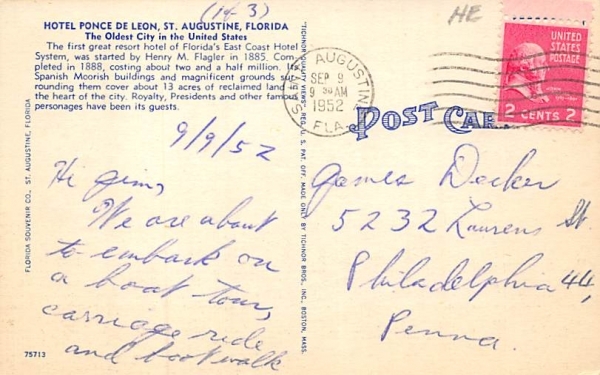 (1 of 3)
HE
HOTEL PONCE DE LEON, ST. AUGUSTINE, FLORIDA
The Oldest City in the United States
The first great resort hotel of Florida's East Coast Hotel
System, was started by Henry M. Flagler in 1885. Com-
pleted in 1888, costing about two and a half million. Its
Spanish Moorish buildings and magnificent grounds sur-
rounding them cover about 13 acres of reclaimed land in
the heart of the city. Royalty, Presidents and other famous
personages have been its guests.
9/9/52
Hi Jim,
We are about
to embark on
a boat tour,
carriage ride
and foot walk
FLORIDA SOUVENIR CO., ST. AUGUSTINE, FLORIDA
75713
"TICHNOR QUALITY VIEWS," REG. U. S. PAT. OFF. MADE ONLY BY TICHNOR BROS., INC., BOSTON, MASS.
SAINT AUGUSTINE
SEP 9
9 30 AM
1952
FLA.
POST CARD
UNITED
STATES
POSTAGE
2 CENTS 2
James Decker
5232 Laurens St.
Philadelphia 44,
Penna.